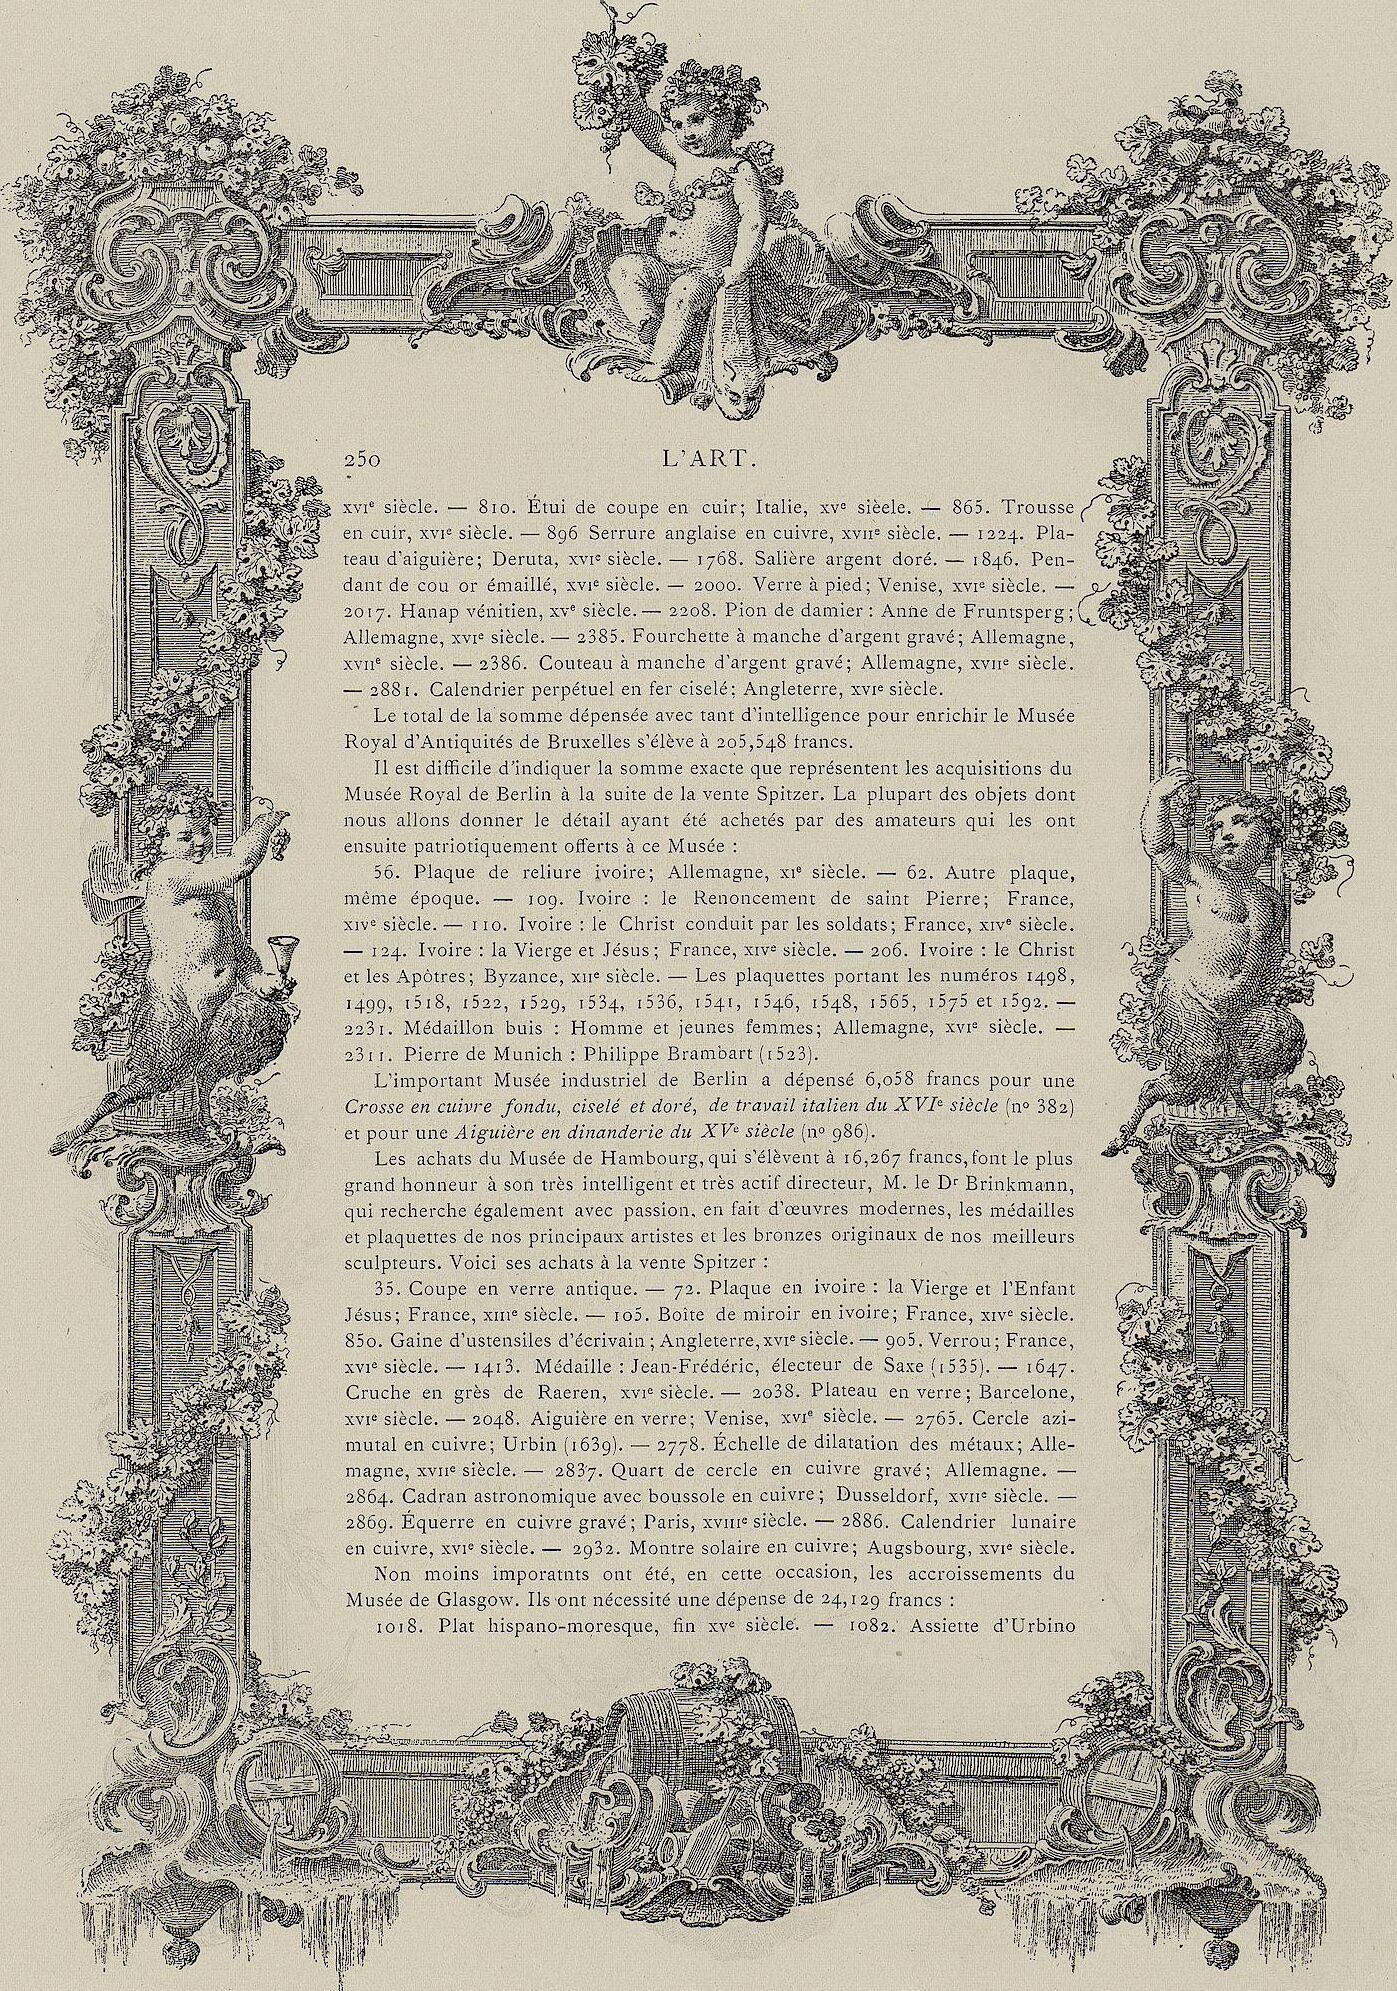 250 L'ART.
XVIe siècle. — 810. Étui de coupe en cuir; Italie, XVe sièele. — 865. Trousse
en cuir, XVIe siècle. — 896 Serrure anglaise en cuivre, XVIIe siècle. — 1224. Pla-
teau d'aiguière; Deruta, XVIe siècle. — 1768. Salière argent doré. — 1846. Pen-
dant de cou or émaillé, XVIe siècle. — 2000. Verre à pied; Venise, XVIe siècle. —
2017. Hanap vénitien, XVe siècle. — 2208. Pion de damier : Anne de Fruntsperg;
Allemagne, XVIe siècle. — 2385. Fourchette à manche d'argent gravé; Allemagne,
XVIIe siècle. — 2386. Couteau à manche d'argent gravé; Allemagne, XVIIe siècle.
— 2881. Calendrier perpétuel en fer ciselé; Angleterre, XVIe siècle.
Le total de la somme dépensée avec tant d'intelligence pour enrichir le Musée
Royal d'Antiquités de Bruxelles s'élève à 205,548 francs.
Il est difficile d'indiquer la somme exacte que représentent les acquisitions du
Musée Royal de Berlin à la suite de la vente Spitzer. La plupart des objets dont
nous allons donner le détail ayant été achetés par des amateurs qui les ont
ensuite patriotiquement offerts à ce Musée :
56. Plaque de reliure ivoire; Allemagne, XIe siècle. — 62. Autre plaque,
même époque. — 109. Ivoire : le Renoncement de saint Pierre; France,
XIVe siècle. — 110. Ivoire : le Christ conduit par les soldats; France, XIVe siècle.
— 124. Ivoire : la Vierge et Jésus; France, XIVe siècle. — 206. Ivoire : le Christ
et les Apôtres; Byzance, XIIe siècle. — Les plaquettes portant les numéros 1498,
1499, 1518, 1522, 1529, 1534, 1536, 1541, 1546, 1548, 1565, 1575 et 1592. —
2231. Médaillon buis : Homme et jeunes femmes; Allemagne, XVIe siècle. —
2311. Pierre de Munich : Philippe Brambart (1523).
L'important Musée industriel de Berlin a dépensé 6,058 francs pour une
Crosse en cuivre fondu, ciselé et doré, de travail italien du XVIe siècle (no 382)
et pour une Aiguière en dinanderie du XVe siècle (no 986).
Les achats du Musée de Hambourg, qui s'élèvent à 16,267 francs, font le plus
grand honneur à son très intelligent et très actif directeur, M. le Dr Brinkmann,
qui recherche également avec passion, en fait d'œuvres modernes, les médailles
et plaquettes de nos principaux artistes et les bronzes originaux de nos meilleurs
sculpteurs. Voici ses achats à la vente Spitzer :
35. Coupe en verre antique. — 72. Plaque en ivoire : la Vierge et l'Enfant
Jésus; France, XIIIe siècle. — 105. Boîte de miroir en ivoire; France, XIVe siècle.
850. Gaine d'ustensiles d'écrivain; Angleterre, XVIe siècle. — 905. Verrou; France,
XVIe siècle. — 1413. Médaille : Jean-Frédéric, électeur de Saxe (1535). — 1647.
Cruche en grès de Raeren, XVIe siècle. — 2038. Plateau en verre; Barcelone,
XVIe siècle. — 2048. Aiguière en verre; Venise, XVIe siècle. — 2765. Cercle azi-
mutal en cuivre; Urbin (1639). — 2778. Échelle de dilatation des métaux; Alle-
magne, XVIIe siècle. — 2837. Quart de cercle en cuivre gravé; Allemagne. —
2864. Cadran astronomique avec boussole en cuivre; Dusseldorf, XVIIe siècle. —
2869. Équerre en cuivre gravé; Paris, XVIIIe siècle. — 2886. Calendrier lunaire
en cuivre, XVIe siècle. — 2932. Montre solaire en cuivre; Augsbourg, XVIe siècle.
Non moins imporatnts ont été, en cette occasion, les accroissements du
Musée de Glasgow. Ils ont nécessité une dépense de 24,129 francs :
1018. Plat hispano-moresque, fin XVe siècle. — 1082. Assiette d'Urbino